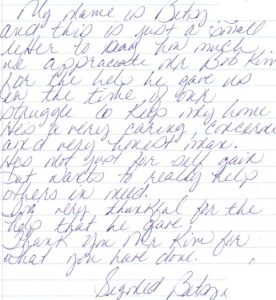 My name is Betsy
and this is just a small
letter to say how much
we appreciate Mr Bob Kim
for the help he gave us
in the time of our
struggle to keep my home
He's a very caring, concerned
and very honest man.
He's not just for self gain
but wants to really help
others in need.
I'm very thankful for the
help that he gave.
Thank you Mr Kim for
what you have done.
Signed Betsy